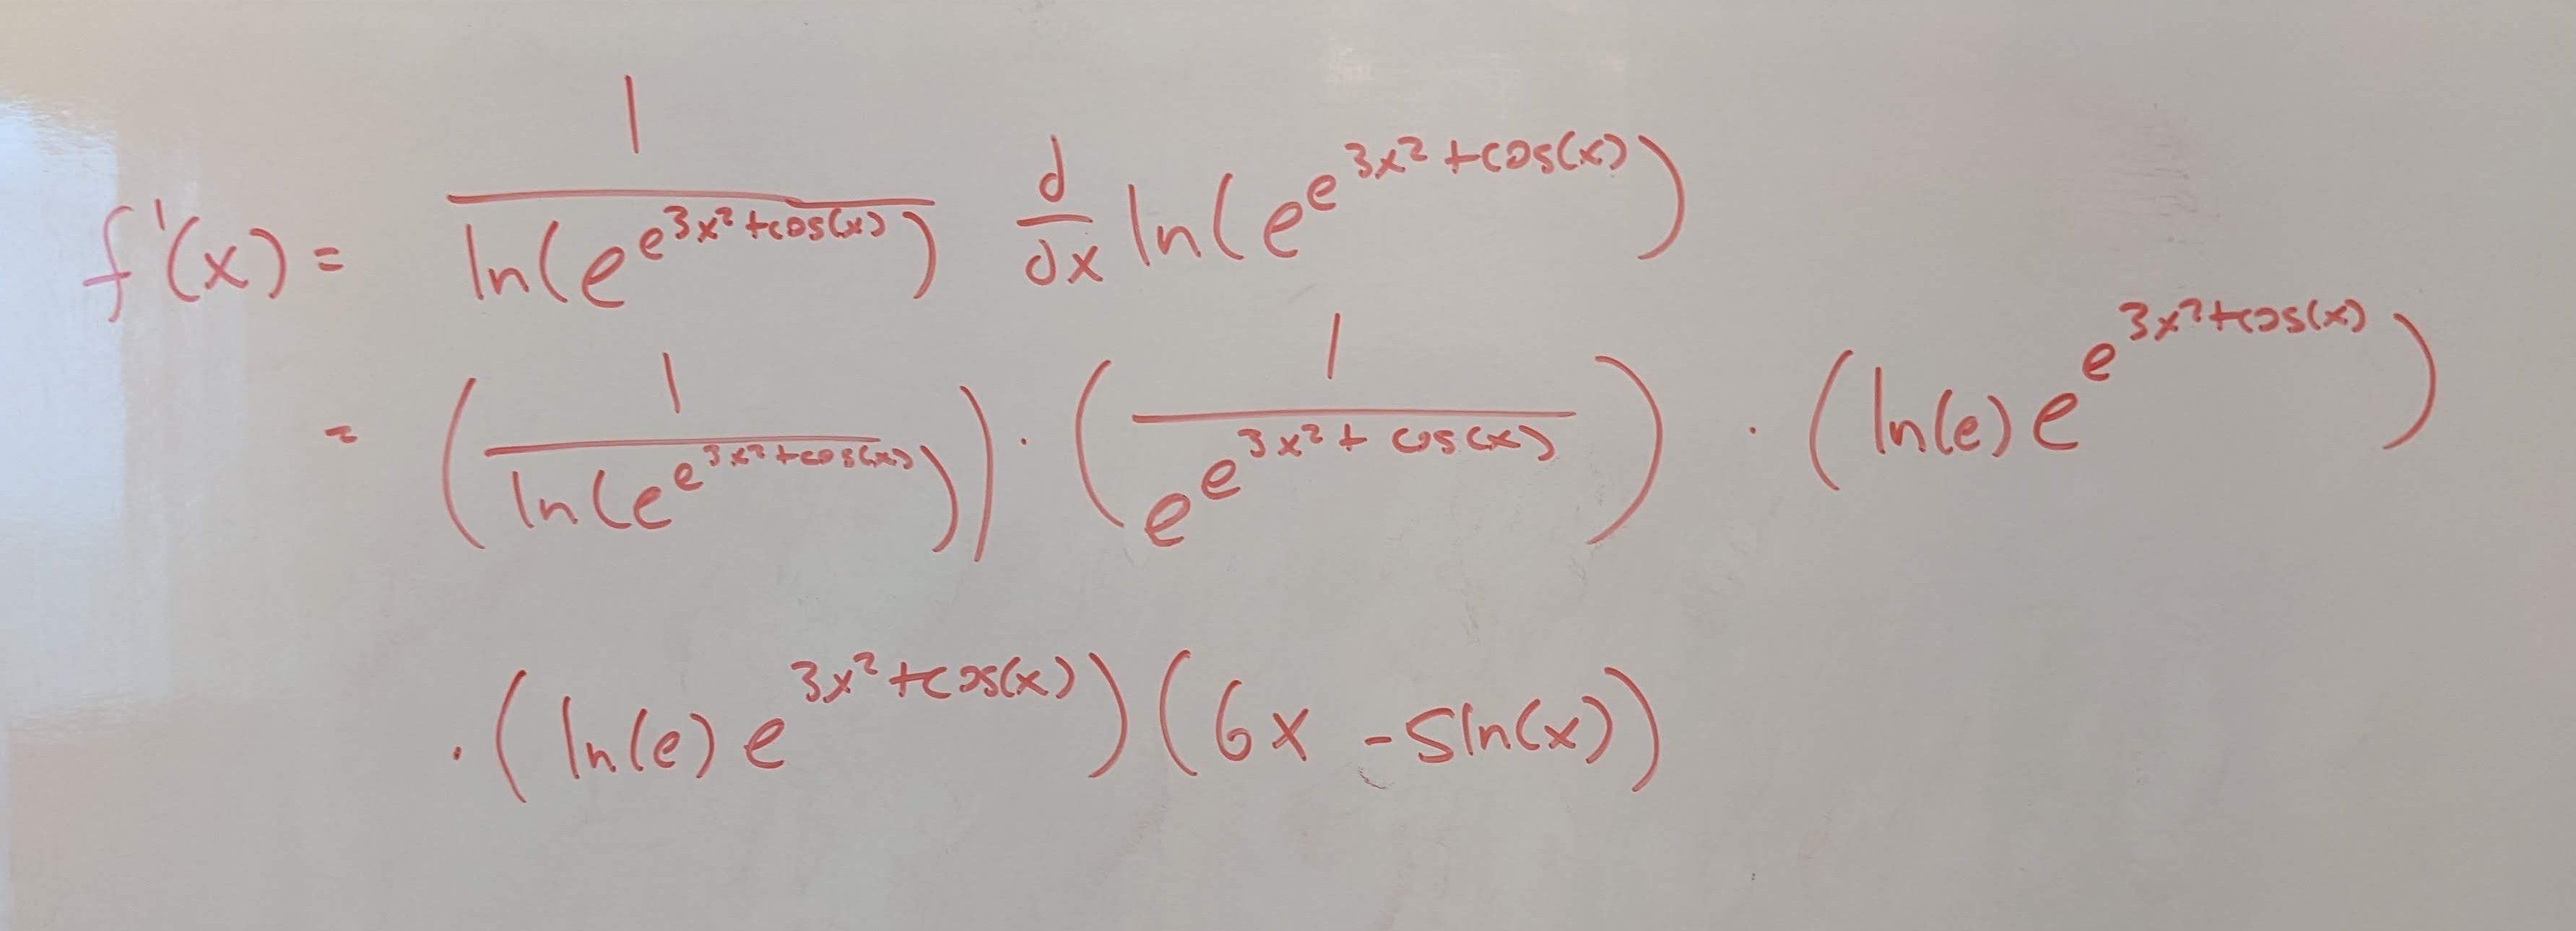 f'(x) = 1/ln(e^e^(3x²+cos(x))) d/dx ln(e^e^(3x²+cos(x)))
= (1/ln(e^e^(3x²+cos(x)))) · (1/e^e^(3x²+cos(x))) · (ln(e) e^e^(3x²+cos(x)))
· (ln(e) e^(3x²+cos(x))) (6x - sin(x))